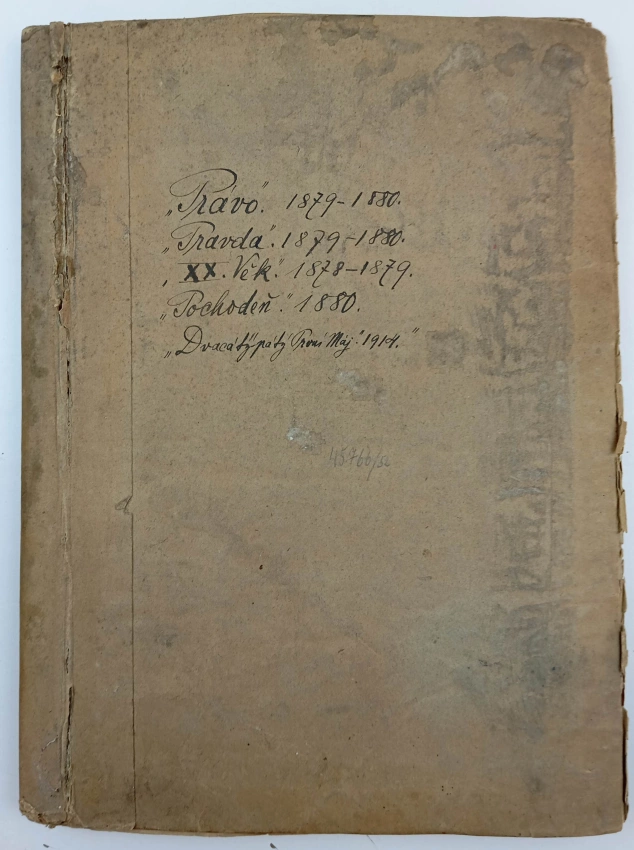 „Právo“. 1879-1880.
„Pravda“. 1879-1880.
„XX. Věk“. 1878-1879.
„Pochodeň“. 1880.
„Dvacátýpátý První Máj“. 1914.“